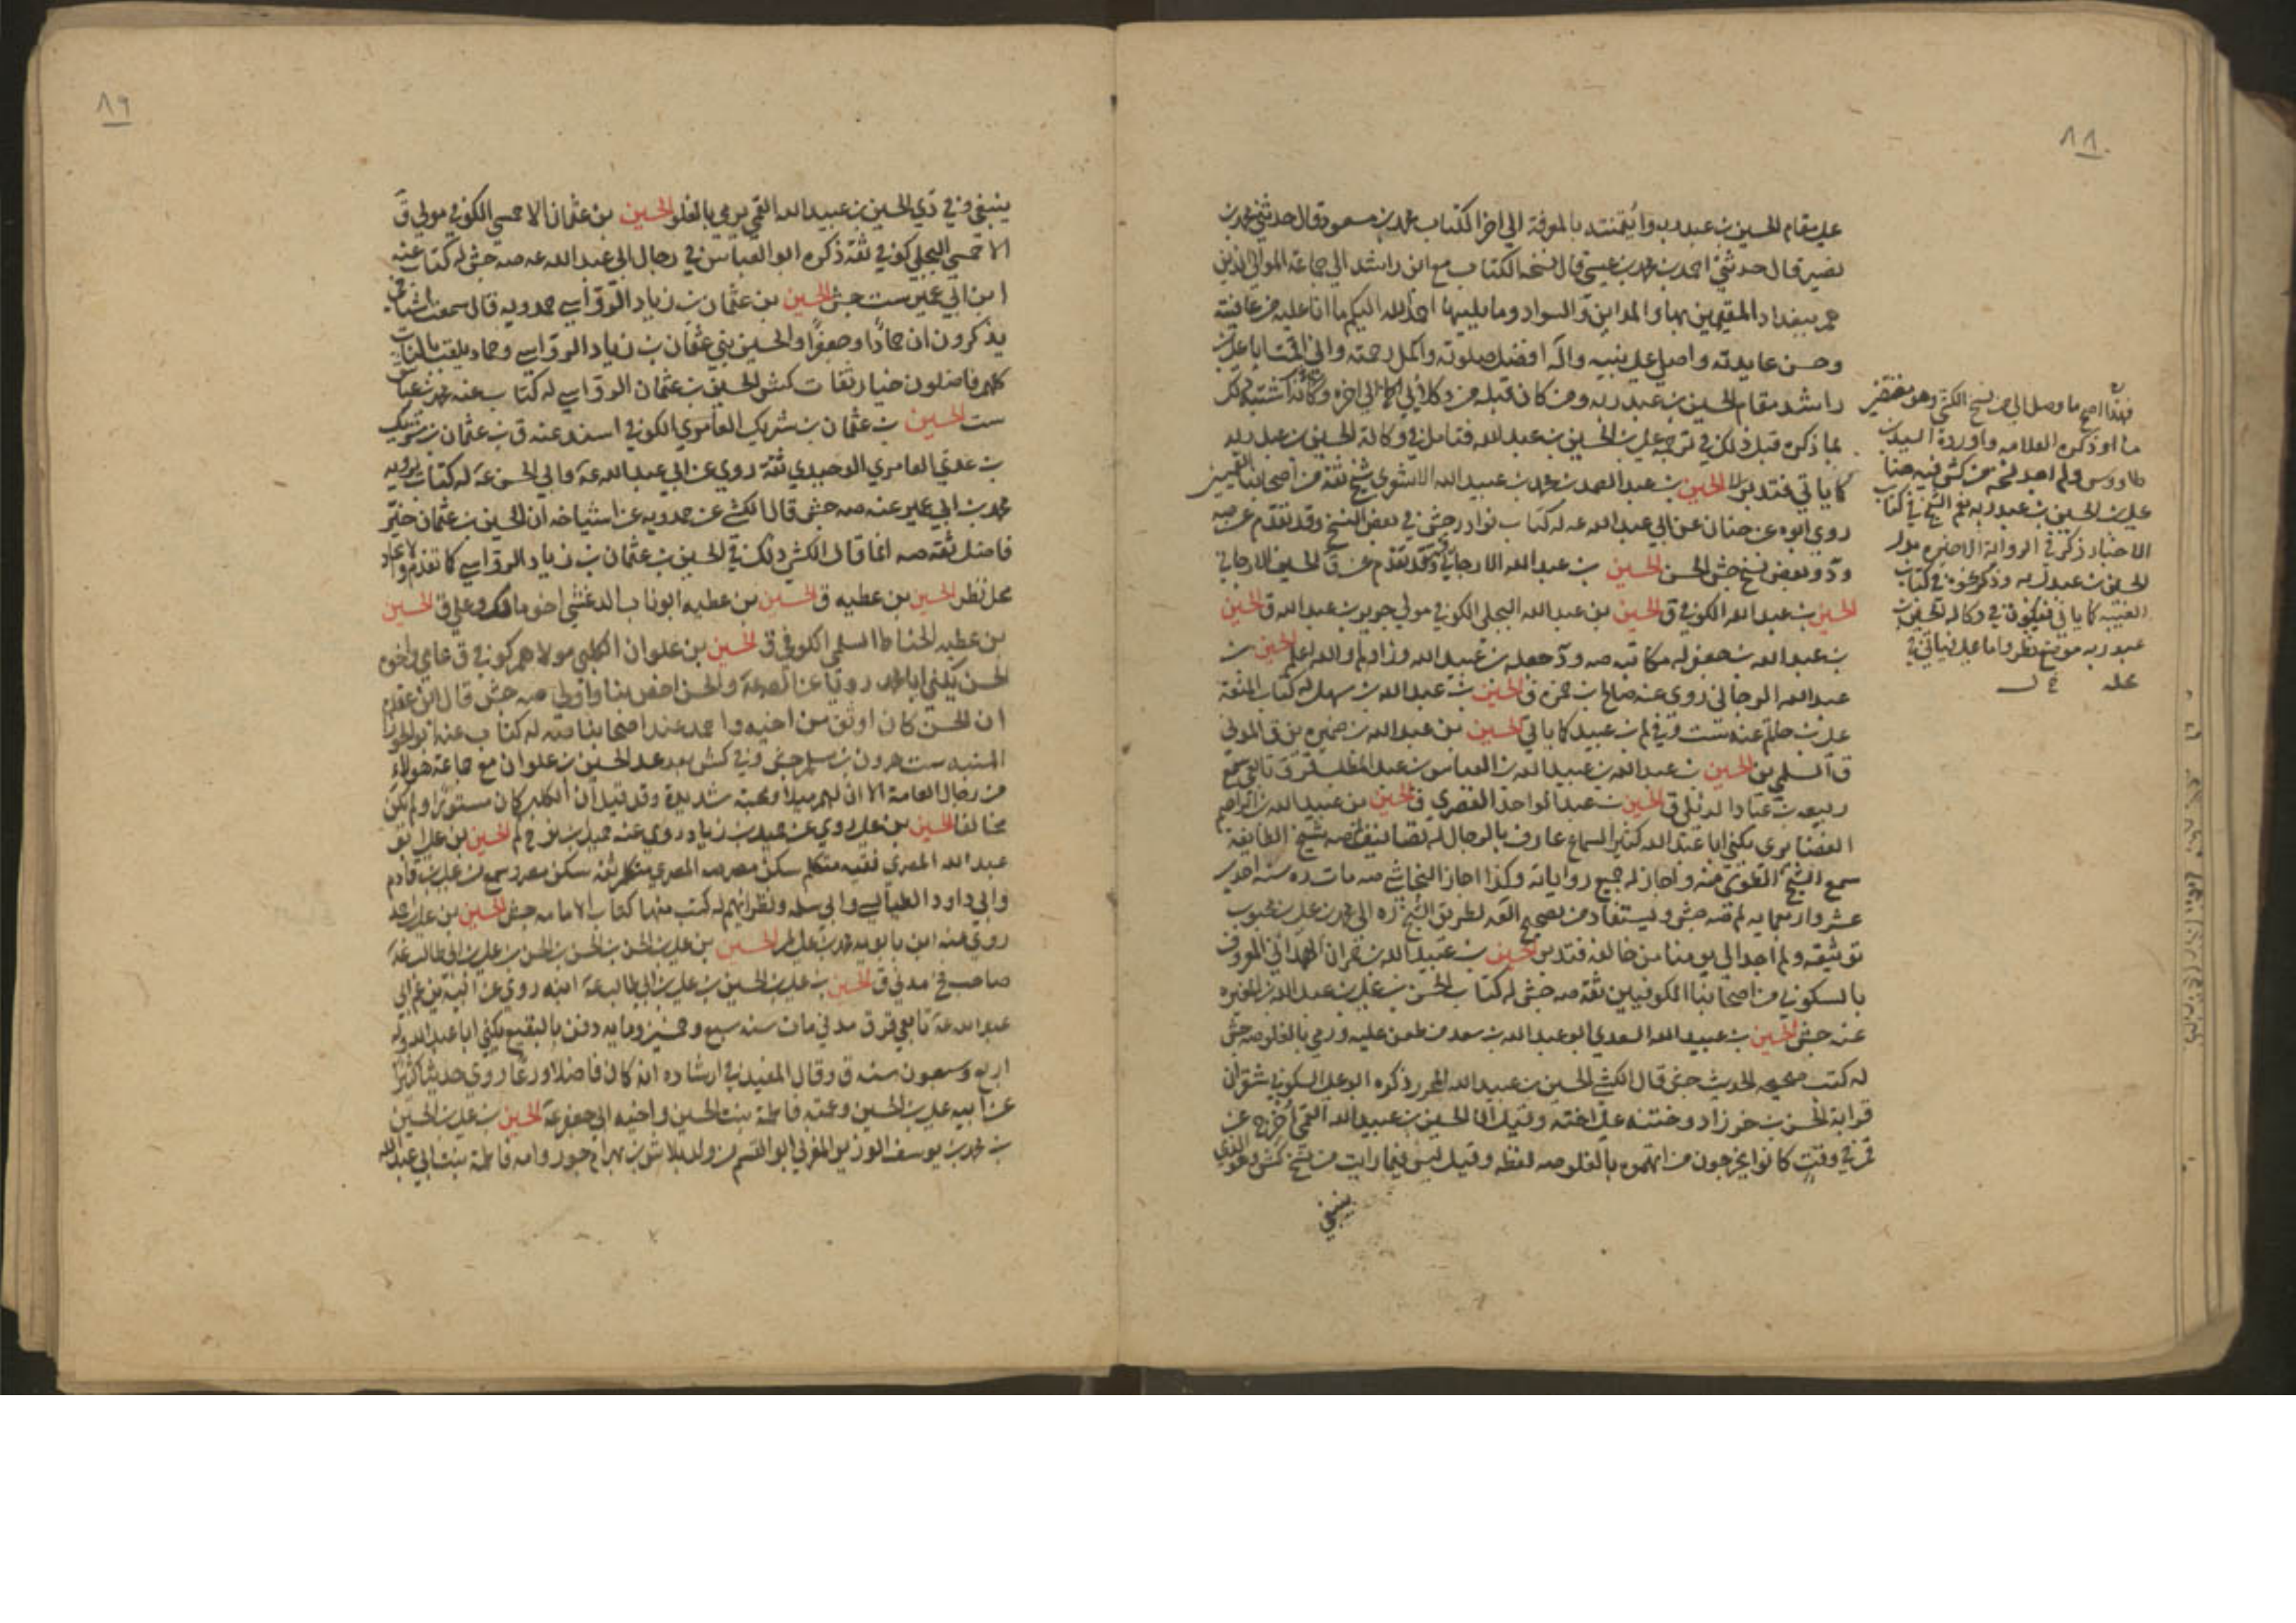 ٨٨
على مقام الحسين بن عبد ربه وائتمنته بالمعرفة الى اخر الكتاب محمد بن مسعود قال حدثني محمد بن
نصير قال حدثني احمد بن محمد بن عيسى قال نسخة الكتاب مع ابن راشد الى جماعة الموالي الذين
هم ببغداد المقيمين بها والمداين والسواد وما يليها احمد الله اليكم ما انا عليه من عافيته
وحسن عايدته واصلي على نبيه وآله افضل صلوته واكمل رحمته واني اقمت ابا علي بن
راشد مقام الحسين بن عبد ربه ومن كان قبله من وكلائي الى اخره وكانه اشتبه
لما ذكره قبل ذلك في ترجمة علي بن الحسين بن عبد الله فتامل في وكالة الحسين بن عبد ربه
كما ياتي فتدبر الحسين بن عبد الصمد بن محمد بن عبيد الله الاشعري شيخ ثقة من اصحابنا القميين
روى ابوه عن حنان عن ابي عبد الله عه له كتاب نوادر جش في بعض النسخ وقد تقدم عن صه
ود وبعض نسخ جش الحسن الحسين بن عبد الله الارجاني وقد تقدم عن ق الحسين الارجاني
الحسين بن عبد الله الكوفي ق الحسين بن عبد الله البجلي الكوفي مولى جرير بن عبد الله ق الحسين
بن عبد الله بن جعفر له مكاتبة صه ود جعله بن عبيد الله وزاد لم والله اعلم الحسين بن
عبد الله الرجاني روى عنه صالح بن حمزه ق الحسين بن عبد الله بن سهل له كتاب المتعة
علي بن حاتم عنه ست وفي لم بن عبيد كما ياتي الحسين بن عبد الله بن ضميره بن ق المدني
ق السلمي بن الحسين بن عبد الله بن عبيد الله بن العباس بن عبد المطلب ق تابعي سمع
ربيعة بن عباد الديلي ق الحسين بن عبد الواحد القصري ق الحسين بن عبيد الله بن ابراهيم
الغضايري يكنى ابا عبد الله كثير السماع عارف بالرجال له تصانيف صه شيخ الطايفة
سمع الشيخ الطوسي منه واجاز له جميع رواياته وكذا اجاز النجاشي صه مات ره سنه احدى
عشر واربعمايه لم صه جش ويستفاد من تصحيح العلامة لطريق الشيخ ره الى محمد بن علي بن محبوب
توثيقه ولم اجد الى يومنا من خالفه فتدبر الحسين بن عبيد الله بن حمران الهمداني المعروف
بالسكوني من اصحابنا الكوفيين ثقة صه جش له كتاب الحسن بن علي بن عبد الله بن المغيره
عنه جش الحسين بن عبيد الله السعدي ابو عبد الله بن سعد ممن طعن عليه ورمي بالغلو صه جش
له كتب صحيحه الحديث جش قال الكشي الحسين بن عبيد الله المحرر ذكره ابو علي السكوني شقران
قرابة الحسن بن خرزاد وختنه على اخته وقيل ان الحسين بن عبيد الله القمي اخرج عن
قم في وقت كانوا يخرجون من اتهموه بالغلو صه لفظه وقيل ليس فيما رايت من نسخ كش وهو الذي
ينبغي
هذا اصح ما وصل الي من نسخ الكشي وهو مقتضى
ما ذكره العلامه واورده السيد بن
طاووس ولم اجد نسخه من كش فيه هنا
علي بن الحسين بن عبد ربه نعم الشيخ في كتاب
الاختيار ذكر في الرواية الاخيره بدل
الحسين بن عبد ربه وذكر نحوه في كتاب
الغيبه كما ياتي فيكون في وكالة الحسين بن
عبد ربه موضع نظر واما علي فياتي في
محله
٨٩
ينبغي وفي دي الحسين بن عبيد الله القمي يرمى بالغلو الحسين بن عثمان الاحمسي الكوفي مولى ق
الاحمسي البجلي كوفي ثقة ذكره ابو العباس في رجال ابي عبد الله عه صه جش له كتاب عنه
ابن ابي عمير ست جش الحسين بن عثمان بن زياد الرواسي حمدويه قال سمعت اشياخي
يذكرون ان حمادا وجعفرا والحسين بني عثمان بن زياد الرواسي وحماد يلقب بالناب
كلهم فاضلون خيار ثقات كش الحسين بن عثمان الرواسي له كتاب عنه محمد بن عياش
ست الحسين بن عثمان بن شريك العامري الكوفي اسند عنه ق بن عثمان بن شريك
بن عدي العامري الوحيدي ثقة روى عن ابي عبد الله عه وابي الحسن عه له كتاب يرويه
محمد بن ابي عمير عنه صه جش قال الكشي عن حمدويه عن اشياخه ان الحسين بن عثمان خير
فاضل ثقة صه انما قال الكشي ذلك في الحسين بن عثمان بن زياد الرواسي كما تقدم والاتحاد
محل نظر الحسين بن عطيه ق الحسين بن عطيه ابو ناب الدغشي اخو مالك وعلي ق الحسين
بن عطيه الحناط السلمي الكوفي ق الحسين بن علوان الكلبي مولاهم كوفي ق عامي واخوه
الحسن يكنى ابا محمد رويا عن الصه عه والحسن اخص بنا واولى صه جش قال ابن عقده
ان الحسن كان اوثق من اخيه واحمد عند اصحابنا صه له كتاب عنه ابو الجوزا
المنبه ست هرون بن مسلم جش وفي كش بعد عد الحسين بن علوان مع جماعة هولاء
من رجال العامة الا ان لهم ميلا ومحبة شديدة وقد قيل ان الكلبي كان مستورا ولم يكن
مخالفا الحسين بن علي روى عنه حميد بن زياد روى عنه جميل بن نوح لم الحسين بن علي ابو
عبد الله المصري فقيه متكلم سكن مصر صه المصري متكلم ثقة سكن مصر وسمع من علي بن قادم
وابي داود الطيالسي وابي سلمه ونظرائهم له كتب منها كتاب الامامه جش الحسين بن علي بن احمد
روى عنه ابن بابويه محمد بن علي لم الحسين بن علي بن الحسن بن الحسن بن الحسن بن علي بن ابي طالب عه
صاحب فخ مدني ق الحسين بن علي بن الحسين بن علي بن ابي طالب عه ابنه روى عن ابيه ين عم ابي
عبد الله عه تابعي قر ق مدني مات سنه سبع وخمسين ومايه دفن بالبقيع يكنى ابا عبد الله وله
اربع وسبعون سنه ق وقال المفيد في ارشاده انه كان فاضلا ورعا روى حديثا كثيرا
عن ابيه علي بن الحسين وعمته فاطمة بنت الحسين واخيه ابي جعفر عه الحسين بن علي بن الحسين
بن محمد بن يوسف الوزير المغربي ابو القسم من ولد بلاش بن بهرام جور وامه فاطمة بنت ابي عبد الله